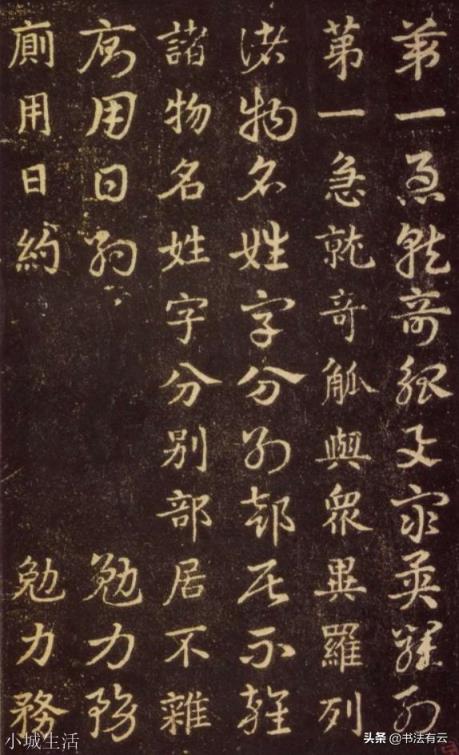 苐一急就奇觚與衆異羅列
苐一急就奇觚與衆異羅列
諸物名姓字分别部居不雜
諸物名姓字分别部居不雜
廁用日約 勉力務
廁用日約 勉力務
小城生活
头条 @书法有云